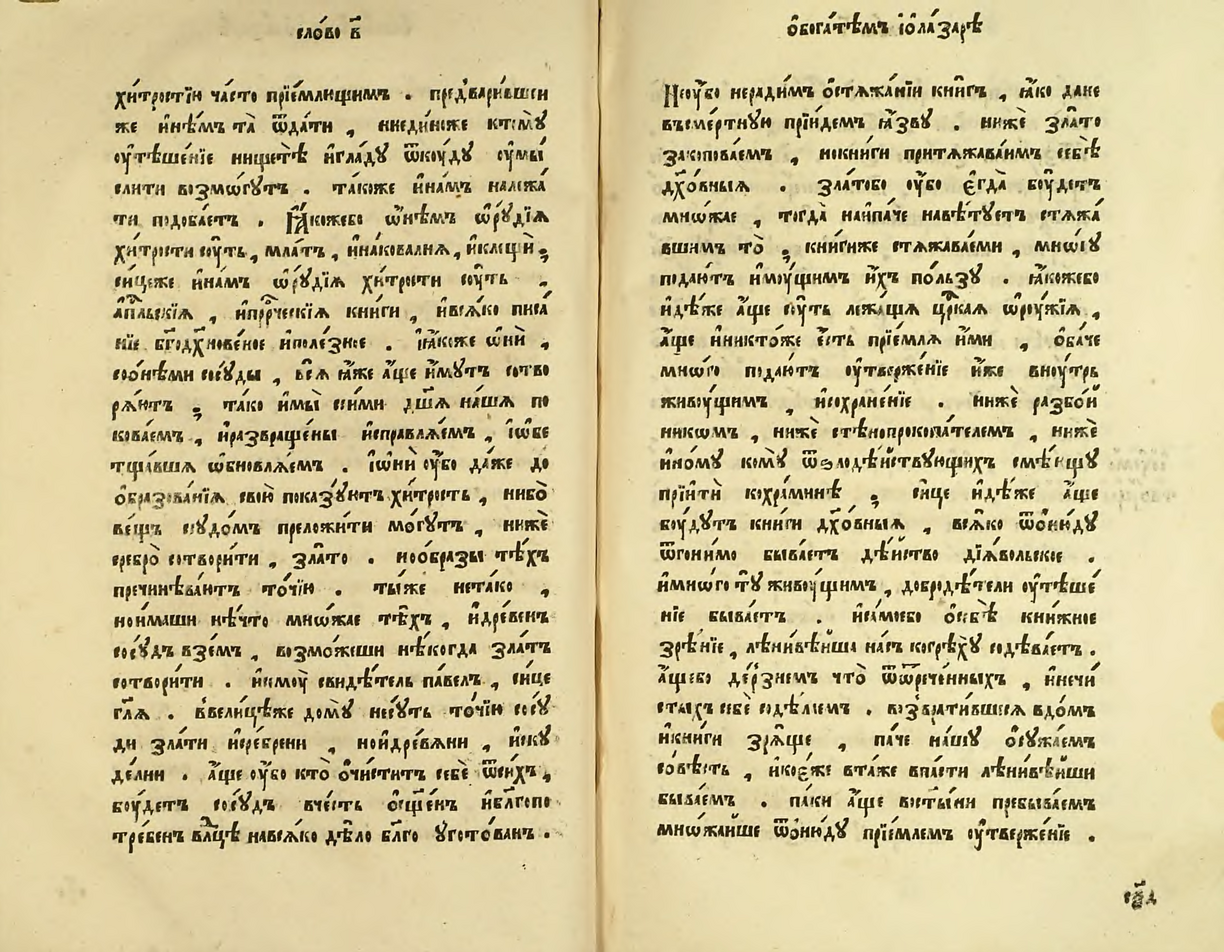 сло́во в҃
хи́трости́и ча́сто прїе́млищимъ . предвари́вшеи
же и҆нѣ́мъ та̀ ѿда́ти , ниеди́ноже ктомꙋ̀
оу҆тѣше́нїе нищетѣ̀ и҆гла́дꙋ ѿкоу́дꙋ оу҆мы́
слити возмо́гꙋтъ . та́коже и҆на́мъ належа́
ти подоба́етъ . Ꙗ҆́кожебо ѡ҆нѣ́мъ ѡ҆рꙋ́дїѧ
хи́трости сꙋ́ть , мла́тъ , и҆накова́лнѧ , и҆клещѝ ;
си́цеже и҆на́мъ ѡ҆рꙋ́дїѧ хи́трости сꙋ́ть ,
а҆пⷭ҇льскїѧ , и҆прⷪ҇рческїѧ кни́ги , и҆всѧ́ко писа́
нїе бг҃одх҃нове́ное и҆поле́зное . ꙗ҆́коже ѡ҆нѝ ,
соѻ҆нѣ́ми сосꙋ́ды , всѧ̀ ꙗ҆́же а҆́ще и҆́мꙋтъ сотво
рѧ́ютъ ; та́ко и҆мы̀ си́ми дш҃а на́шѧ по
кова́емъ , и҆развраще́ны и҆справлѧ́емъ , і҆ѡ҆бе
тша́вшѧ ѡ҆бновлѧ́емъ . і҆ѡ҆нѝ оу҆́бо да́же до
ѻ҆бразова́нїѧ свою̀ пока́зꙋютъ хи́трость , нибо̀
ве́щь сꙋдо́мъ преложи́ти мо́гꙋтъ , нижѐ
сребро̀ сотвори́ти , зла́то . но ѻ҆́бразы тѣ́хъ
пречинѣва́ютъ то́чїю . ты́же нета́ко ,
но и҆́маши нѣ́что мно́жае тѣ́хъ , и҆дре́венъ
сосꙋ́дъ взе́мъ , возмо́жеши нѣ́когда зла́тъ
сотвори́ти . и҆семоу̀ свидѣ́тель па́велъ , си́це
гл҃ѧ . вве́лицѣже домꙋ̀ несꙋ́ть то́чїю сосꙋ́
ди зла́ти и҆сре́брени , но и҆древѧ́ни , и҆скꙋ
де́лни . а҆́ще оу҆́бо кто̀ ѻ҆чи́ститъ себѐ ѿси́хъ ,
бꙋ́детъ сосꙋ́дъ вче́сть ѻ҆сщ҃е́нъ и҆бл҃гопо
тре́бенъ влⷣцѣ навсѧ́ко дѣ́ло бл҃го ᲂу҆гото́ванъ .
ѻ҆бога́тѣмъ і҆ѻ҆ла́зарѣ
Не оу҆́бо неради́мъ ѻ҆стѧжа́нїи кни́гъ , ꙗ҆́ко дане
въсме́ртнꙋю прїи́демъ ꙗ҆́звꙋ . нижѐ зла́то
закопова́емъ , нокни́ги притѧжава́имъ себѣ̀
дх҃о́вныѧ . зла́тобо оу҆́бо є҆гда̀ бꙋ́детъ
мно́жае , тогда̀ наи́паче навѣ́тꙋетъ стѧжа́
вшимъ то̀ ; кни́гиже стѧжава́еми , мно́гꙋ
подаю́тъ и҆мꙋ́щимъ и҆́хъ по́льзꙋ . ꙗ҆́кожебо
и҆дѣ́же а҆́ще сꙋ́ть лежа́щѧ цр҃каѧ ѡ҆рꙋ́жїѧ ,
а҆́ще и҆никто́же є҆́сть прїе́млѧ и҆́ми , ѻ҆ба́че
мно́го подаю́тъ оу҆твержде́нїе и҆́же внꙋ́трь
живꙋ́щимъ , и҆сохране́нїе . нижѐ разбо́й
нико́мъ , нижѐ стѣнопрокопа́телемъ , нижѐ
и҆но́мꙋ комꙋ̀ ѿѕлодѣ́йствꙋющихъ смѣ́ющꙋ
прїитѝ кохра́минѣ ; си́це и҆дѣ́же а҆́ще
бꙋ́дꙋтъ кни́ги дх҃о́вныѧ , всѧ́ко ѿѻ҆ню́дꙋ
ѿгони́мо быва́етъ дѣ́йство дїѧ́вольское .
и҆мно́го тꙋ̀ живꙋ́щимъ , добродѣ́тели оу҆тѣше́
нїе быва́етъ . и҆самоебо ѻ҆себѣ̀ кни́жное
зрѣ́нїе , лѣни́вѣйша на́съ когрѣхꙋ̀ содѣва́етъ .
а҆́щебо де́рзнемъ что̀ ѿѡ҆рече́нныхъ , и҆нечи́
стыхъ себѐ содѣ́лаемъ . возврати́вшесѧ вдо́мъ
и҆кни́ги зрѧ́ще , па́че на́шꙋ ѻ҆сꙋжа́емъ
со́вѣсть , и҆коє҆́же вта́же впа́сти лѣни́вѣйши
быва́емъ . па́ки а҆́ще вст҃ы́ни пребыва́емъ
мно́жайше ѿѻ҆ню́дꙋ прїе́млемъ оу҆твержде́нїе .